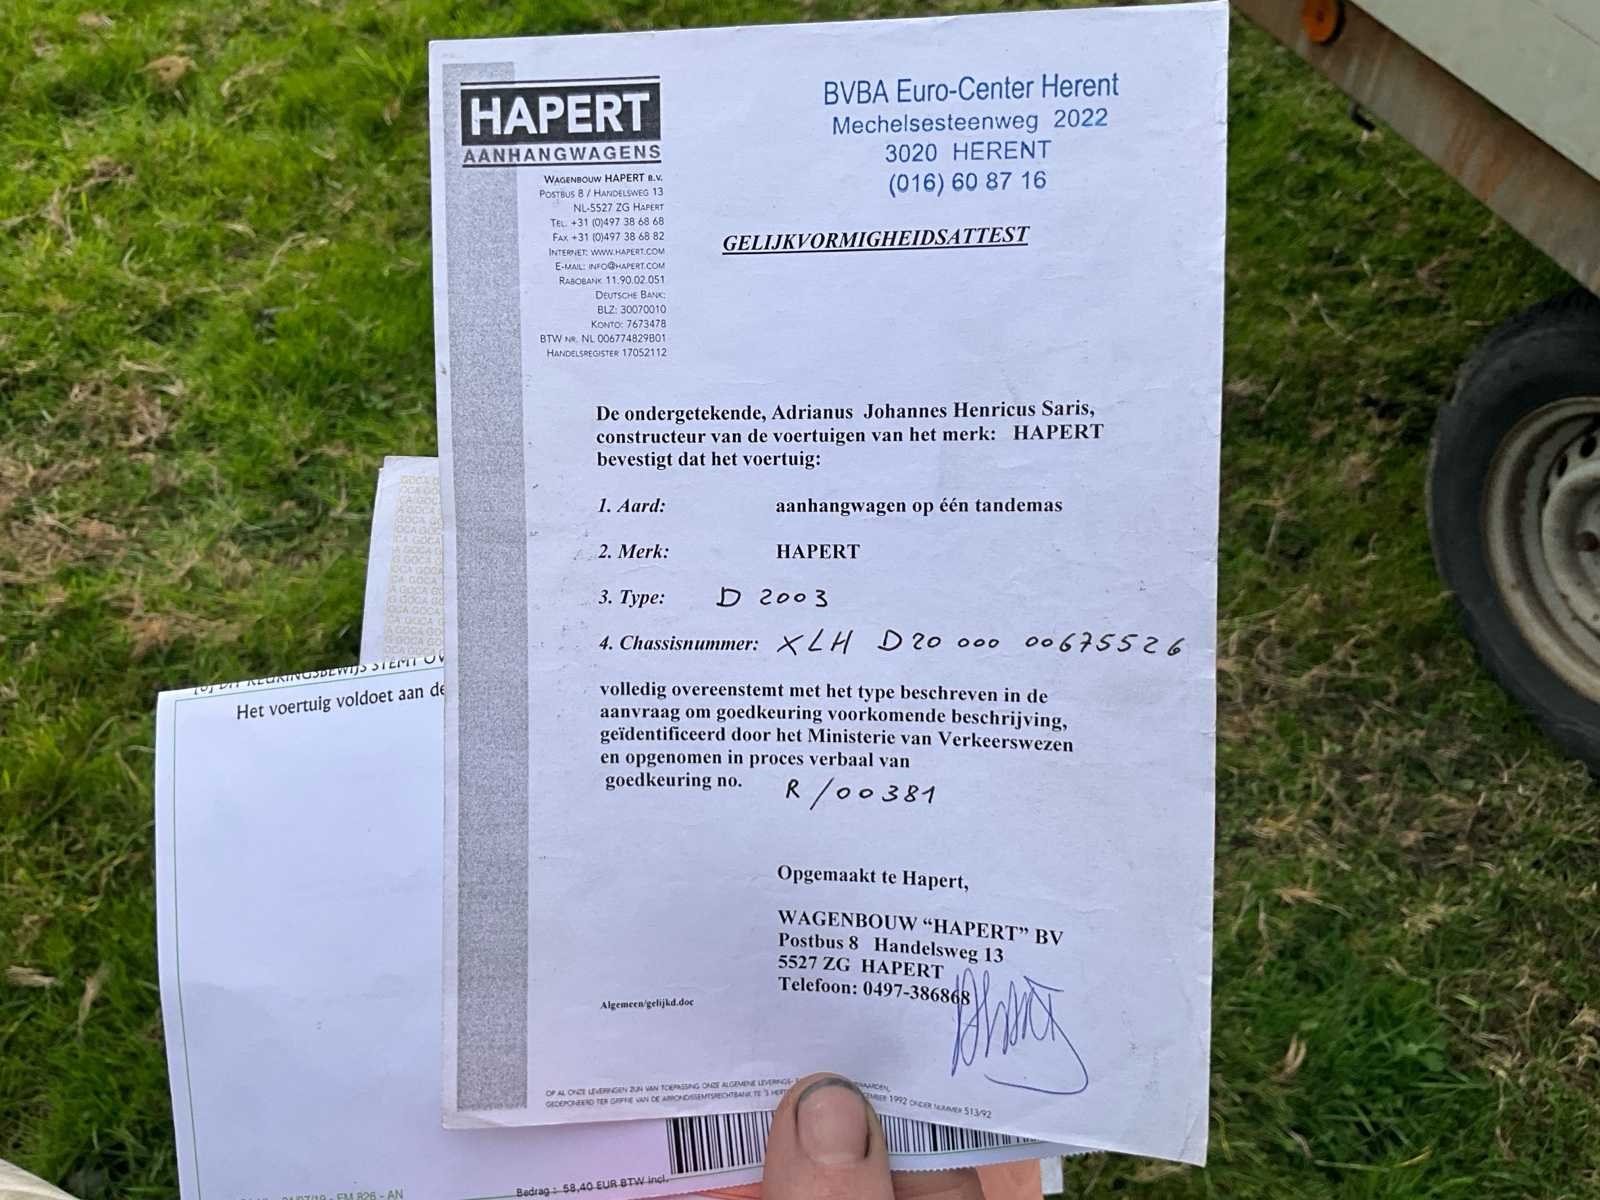 HAPERT
AANHANGWAGENS
WAGENBOUW HAPERT B.V.
POSTBUS 8 / HANDELSWEG 13
NL-5527 ZG HAPERT
TEL. +31 (0)497 38 68 68
FAX +31 (0)497 38 68 82
INTERNET: WWW.HAPERT.COM
E-MAIL: INFO@HAPERT.COM
RABOBANK 11.90.02.051
DEUTSCHE BANK:
BLZ: 30070010
KONTO: 7673478
BTW NR. NL 006774829B01
HANDELSREGISTER 17052112
BVBA Euro-Center Herent
Mechelsesteenweg 2022
3020 HERENT
(016) 60 87 16
GELIJKVORMIGHEIDSATTEST
De ondergetekende, Adrianus Johannes Henricus Saris,
constructeur van de voertuigen van het merk: HAPERT
bevestigt dat het voertuig:
1. Aard: aanhangwagen op één tandemas
2. Merk: HAPERT
3. Type: D 2003
4. Chassisnummer: XLH D20 000 00675526
volledig overeenstemt met het type beschreven in de
aanvraag om goedkeuring voorkomende beschrijving,
geïdentificeerd door het Ministerie van Verkeerswezen
en opgenomen in proces verbaal van
goedkeuring no. R /00381
Opgemaakt te Hapert,
WAGENBOUW “HAPERT” BV
Postbus 8 Handelsweg 13
5527 ZG HAPERT
Telefoon: 0497-386868
Algemeen/gelijkd.doc
OP AL ONZE LEVERINGEN ZIJN VAN TOEPASSING ONZE ALGEMENE LEVERINGS-
GEDEPONEERD TER GRIFFIE VAN DE ARRONDISSEMENTSRECHTBANK TE 'S 1992 ONDER NUMMER 513/92
Het voertuig voldoet aan de
Bedrag : 58,40 EUR BTW incl.